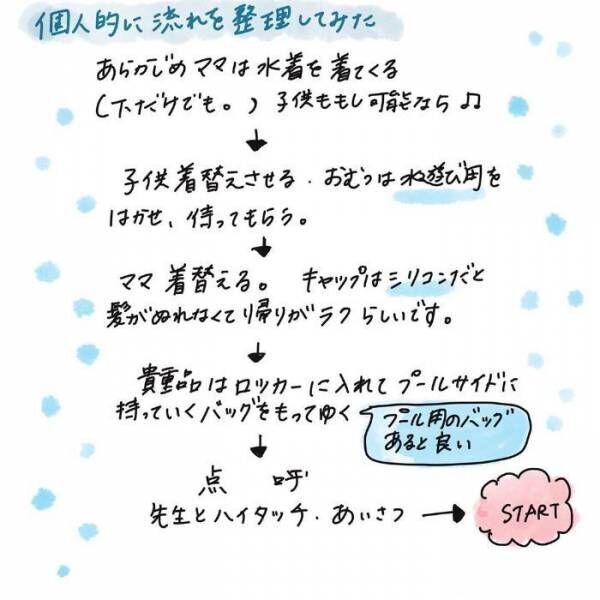 個人的に流れを整理してみた
あらかじめママは水着を着てくる
(下だけでも。) 子供ももし可能なら♫
↓
子供着替えさせる・おむつは水遊び用を
はかせ、待ってもらう。
↓
ママ着替える。 キャップはシリコンだと
髪がぬれなくて帰りがラクらしいです。
↓
貴重品はロッカーに入れてプールサイドに
持っていくバッグをもってゆく
プール用のバッグ
あると良い
↓
点呼
先生とハイタッチ・あいさつ → START